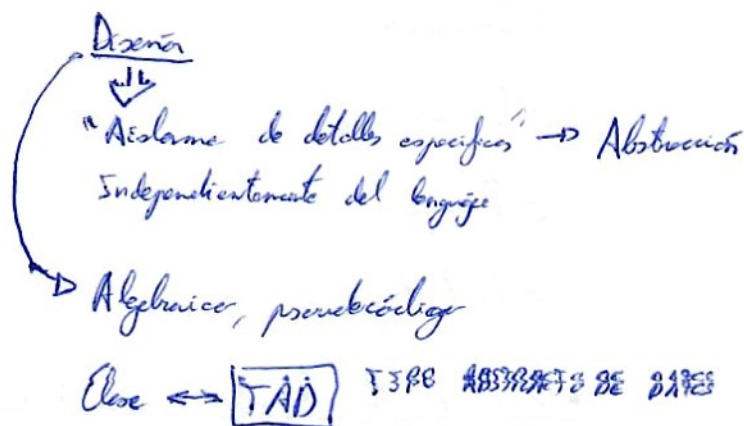 Diseñar
"Aislarme de detalles específicos" → Abstracción
Independientemente del lenguaje
Algebraica, pseudocódigo
Clase ↔ TAD TIPO ABSTRACTO DE DATOS